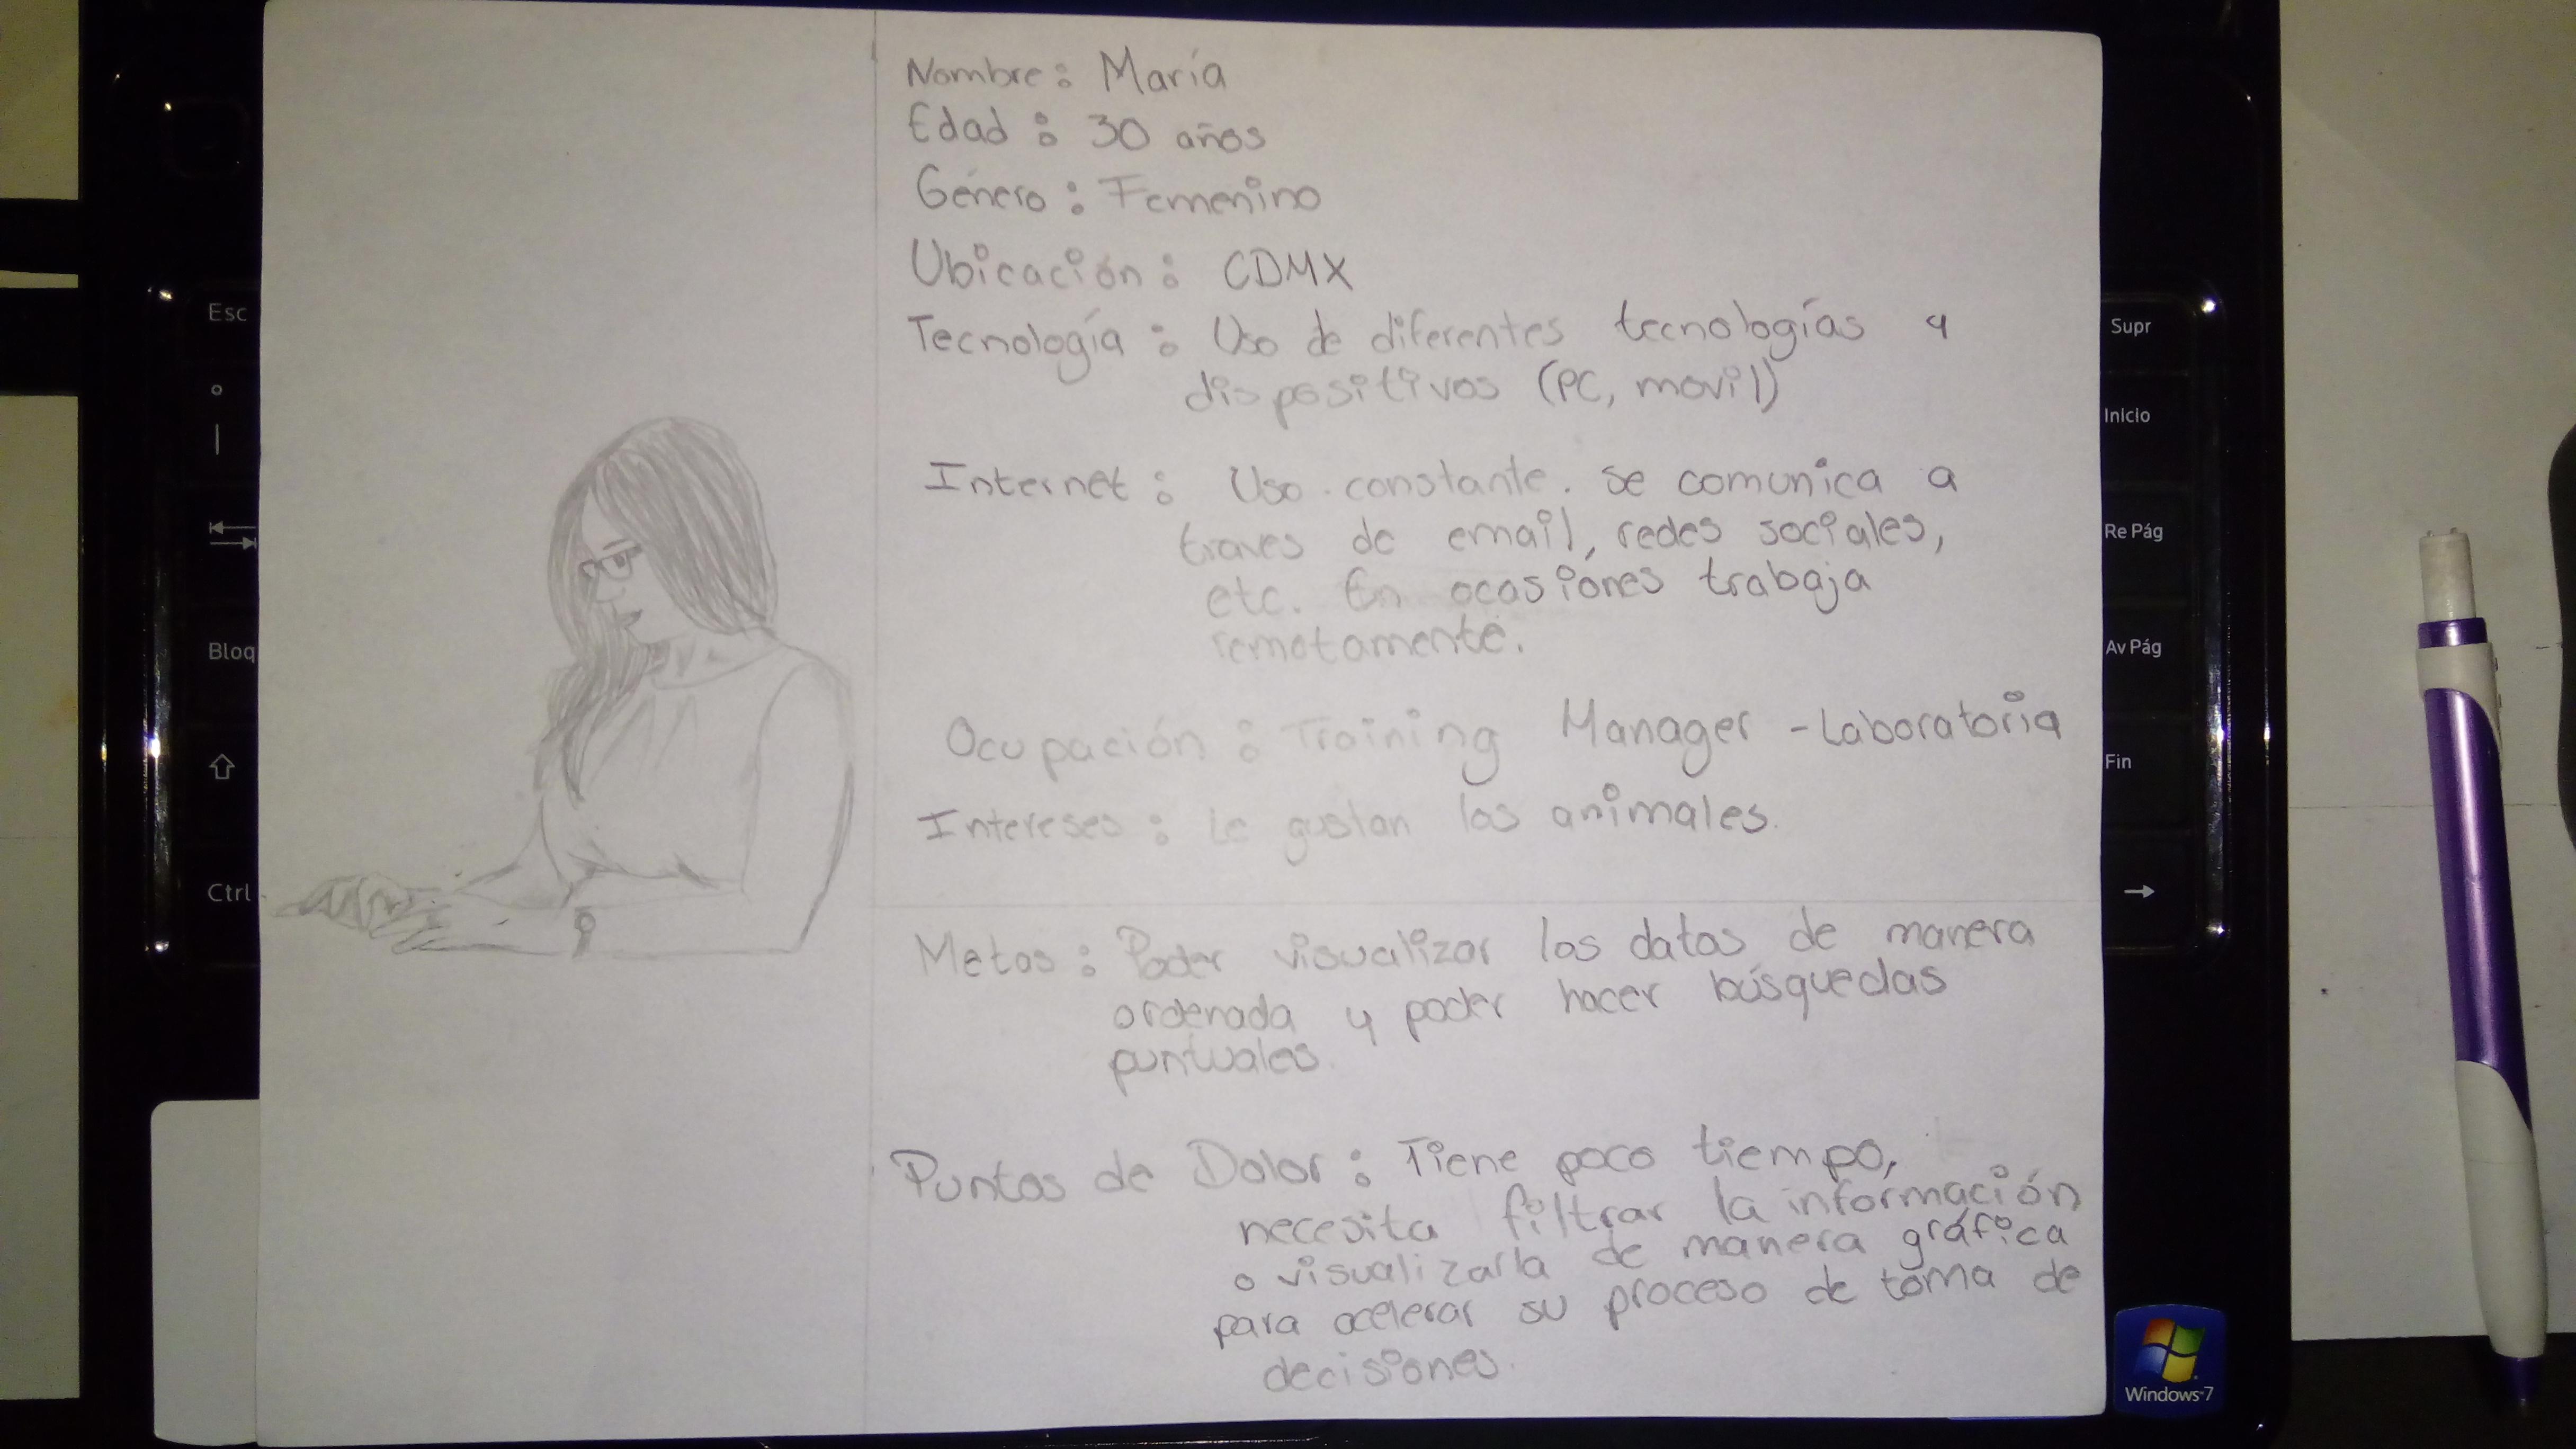 Nombre: María
Edad: 30 años
Género: Femenino
Ubicación: CDMX
Tecnología: Uso de diferentes tecnologías y
dispositivos (PC, movil)
Internet: Uso constante. se comunica a
traves de email, redes sociales,
etc. En ocasiónes trabaja
remotamente.
Ocupación: Training Manager - Laboratoria
Intereses: Le gustan los animales.
Metas: Poder visualizar los datos de manera
ordenada y poder hacer búsquedas
puntuales.
Puntos de Dolor: Tiene poco tiempo,
necesita filtrar la información
o visualizarla de manera gráfica
para acelerar su proceso de toma de
decisiones.
Esc
Bloq
Ctrl
Supr
Inicio
Re Pág
Av Pág
Fin
Windows 7